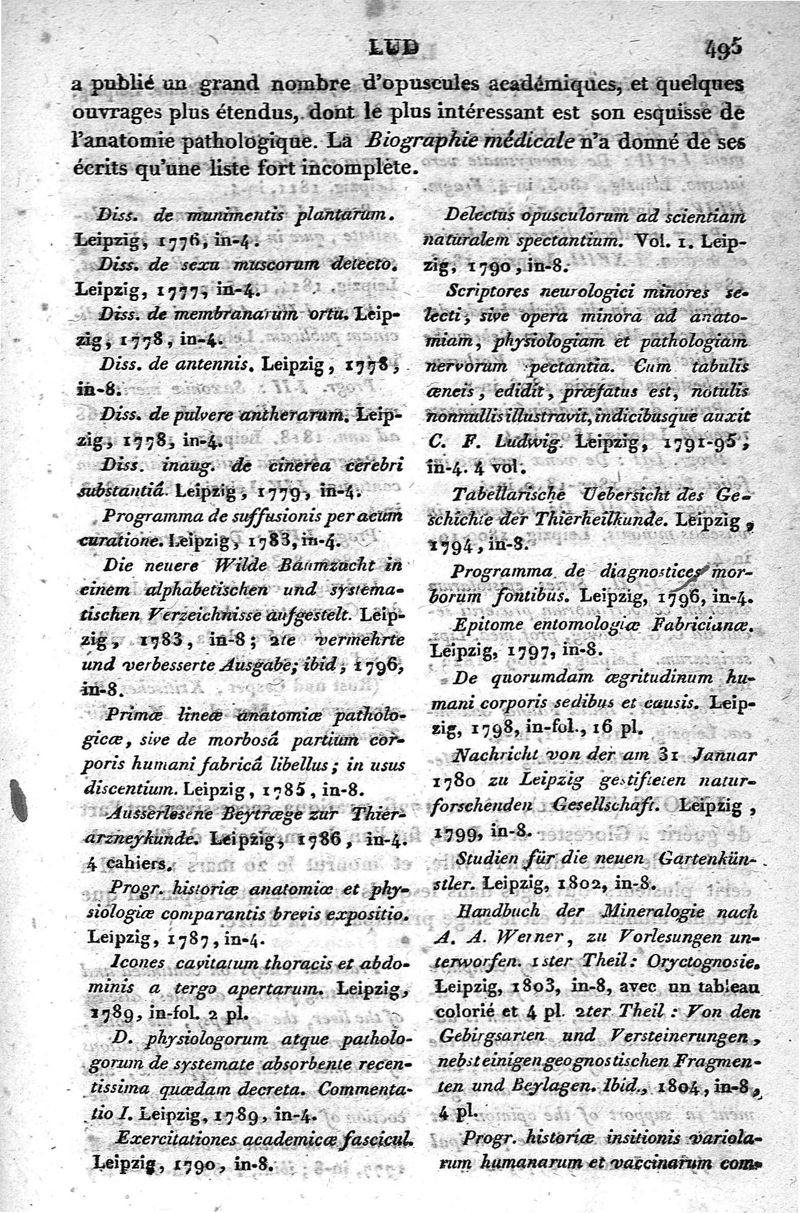 LUD
495
a publié un grand nombre d'opuscules académiques, et quelques
ouvrages plus étendus, dont le plus intéressant est son esquisse de
l'anatomie pathologique. La Biographie médicale n'a donné de ses
écrits qu'une liste fort incomplète.
Diss. de munimentis plantarum.
Leipzig, 1776, in-4.
Diss. de sexu muscorum detecto.
Leipzig, 1777, in-4.
Diss. de membranarum ortu. Leip-
zig, 1778, in-4.
Diss. de antennis. Leipzig, 1778,
in-8.
Diss. de pulvere antherarum. Leip-
zig, 1778, in-4.
Diss. inaug. de cinerea cerebri
substantiâ. Leipzig, 1779, in-4.
Programma de suffusionis per acum
curatione. Leipzig, 1783, in-4.
Die neuere Wilde Baumzucht in
einem alphabetischen und systema-
tischen Verzeichnisse aufgestelt. Leip-
zig, 1783, in-8; 2te vermehrte
und verbesserte Ausgabe; ibid, 1796,
in-8.
Primæ lineæ anatomiæ patholo-
gicæ, sive de morbosâ partium cor-
poris humani fabricâ libellus; in usus
discentium. Leipzig, 1785, in-8.
Ausserlesene Beytræge zur Thier-
arzneykunde. Leipzig, 1786, in-4.
4 cahiers.
Progr. historiæ anatomiæ et phy-
siologiæ comparantis brevis expositio.
Leipzig, 1787, in-4.
Icones cavitatum thoracis et abdo-
minis a tergo apertarum. Leipzig,
1789, in-fol. 2 pl.
D. physiologorum atque patholo-
gorum de systemate absorbente recen-
tissima quædam decreta. Commenta-
tio I. Leipzig, 1789, in-4.
Exercitationes academicæ fascicul.
Leipzig, 1790, in-8.
Delectus opusculorum ad scientiam
naturalem spectantium. Vol. 1. Leip-
zig, 1790, in-8.
Scriptores neurologici minores se-
lecti, sive opera minora ad anato-
miam, physiologiam et pathologiam
nervorum pectantia. Cum tabulis
æneis, edidit, præfatus est, notulis
nonnullis illustravit, indicibusque auxit
C. F. Ludwig. Leipzig, 1791-95,
in-4. 4 vol.
Tabellarische Uebersicht des Ge-
schichte der Thierheilkunde. Leipzig,
1794, in-8.
Programma de diagnostices mor-
borum fontibus. Leipzig, 1796, in-4.
Epitome entomologiæ Fabricianæ.
Leipzig, 1797, in-8.
De quorumdam ægritudinum hu-
mani corporis sedibus et causis. Leip-
zig, 1798, in-fol., 16 pl.
Nachricht von der am 31 Januar
1780 zu Leipzig gestifteten natur-
forschenden Gesellschaft. Leipzig,
1799, in-8.
Studien für die neuen Gartenkün-
stler. Leipzig, 1802, in-8.
Handbuch der Mineralogie nach
A. A. Werner, zu Vorlesungen un-
terworfen. 1ster Theil: Oryctognosie.
Leipzig, 1803, in-8, avec un tableau
colorié et 4 pl. 2ter Theil: Von den
Gebirgsarten und Versteinerungen,
nebst einigen geognostischen Fragmen-
ten und Beylagen. Ibid., 1804, in-8,
4 pl.
Progr. historiæ insitionis variola-
rum humanarum et vaccinarum com-